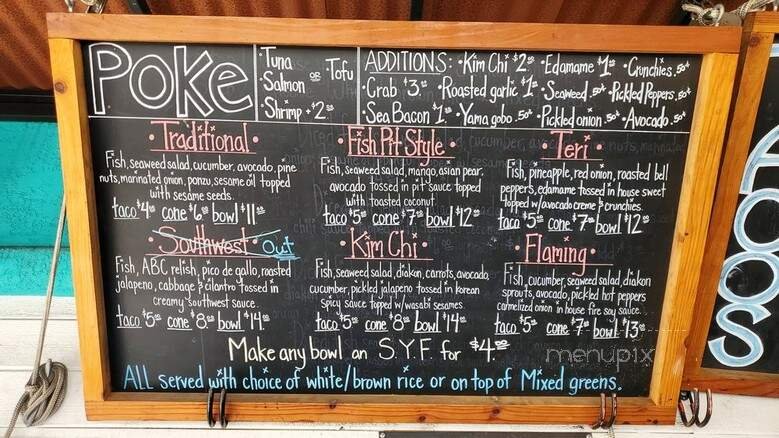 POKE
Tuna
Salmon OR Tofu
Shrimp +2.00
ADDITIONS: • Kim Chi $2.00 • Edamame $1.00 • Crunchies .50¢
Crab $3.00 • Roasted garlic $1.00 • Seaweed .50¢ • Pickled Peppers .50¢
Sea Bacon $1.00 • Yama gobo .50¢ • Pickled onion .50¢ • Avocado .50¢
• Traditional •
Fish, seaweed salad, cucumber, avocado, pine
nuts, marinated onion, ponzu, sesame oil topped
with sesame seeds.
taco $4.00 cone $6.00 bowl $11.00
• Fish Pit Style •
Fish, seaweed salad, mango, asian pear,
avocado tossed in pit sauce topped
with toasted coconut.
taco $5.00 cone $7.00 bowl $12.00
• Teri •
Fish, pineapple, red onion, roasted bell
peppers, edamame tossed in house sweet
topped w/avocado creme & crunchies.
taco $5.00 cone $7.00 bowl $12.00
• Southwest • Out
Fish, ABC relish, pico de gallo, roasted
jalapeno, cabbage & cilantro tossed in
creamy southwest sauce.
taco $5.00 cone $8.00 bowl $14.00
• Kim Chi •
Fish, seaweed salad, diakon, carrots, avocado,
cucumber, pickled jalapeno tossed in korean
spicy sauce topped w/wasabi sesames
taco $5.00 cone $8.00 bowl $14.00
• Flaming •
Fish, cucumber, seaweed salad, diakon
sprouts, avocado, pickled hot peppers
carmelized onion in house fire soy sauce.
taco $5.00 cone $7.00 bowl $13.00
Make any bowl an S.Y.F. for $4.00
ALL served with choice of white/brown rice or on top of Mixed greens.
menupix